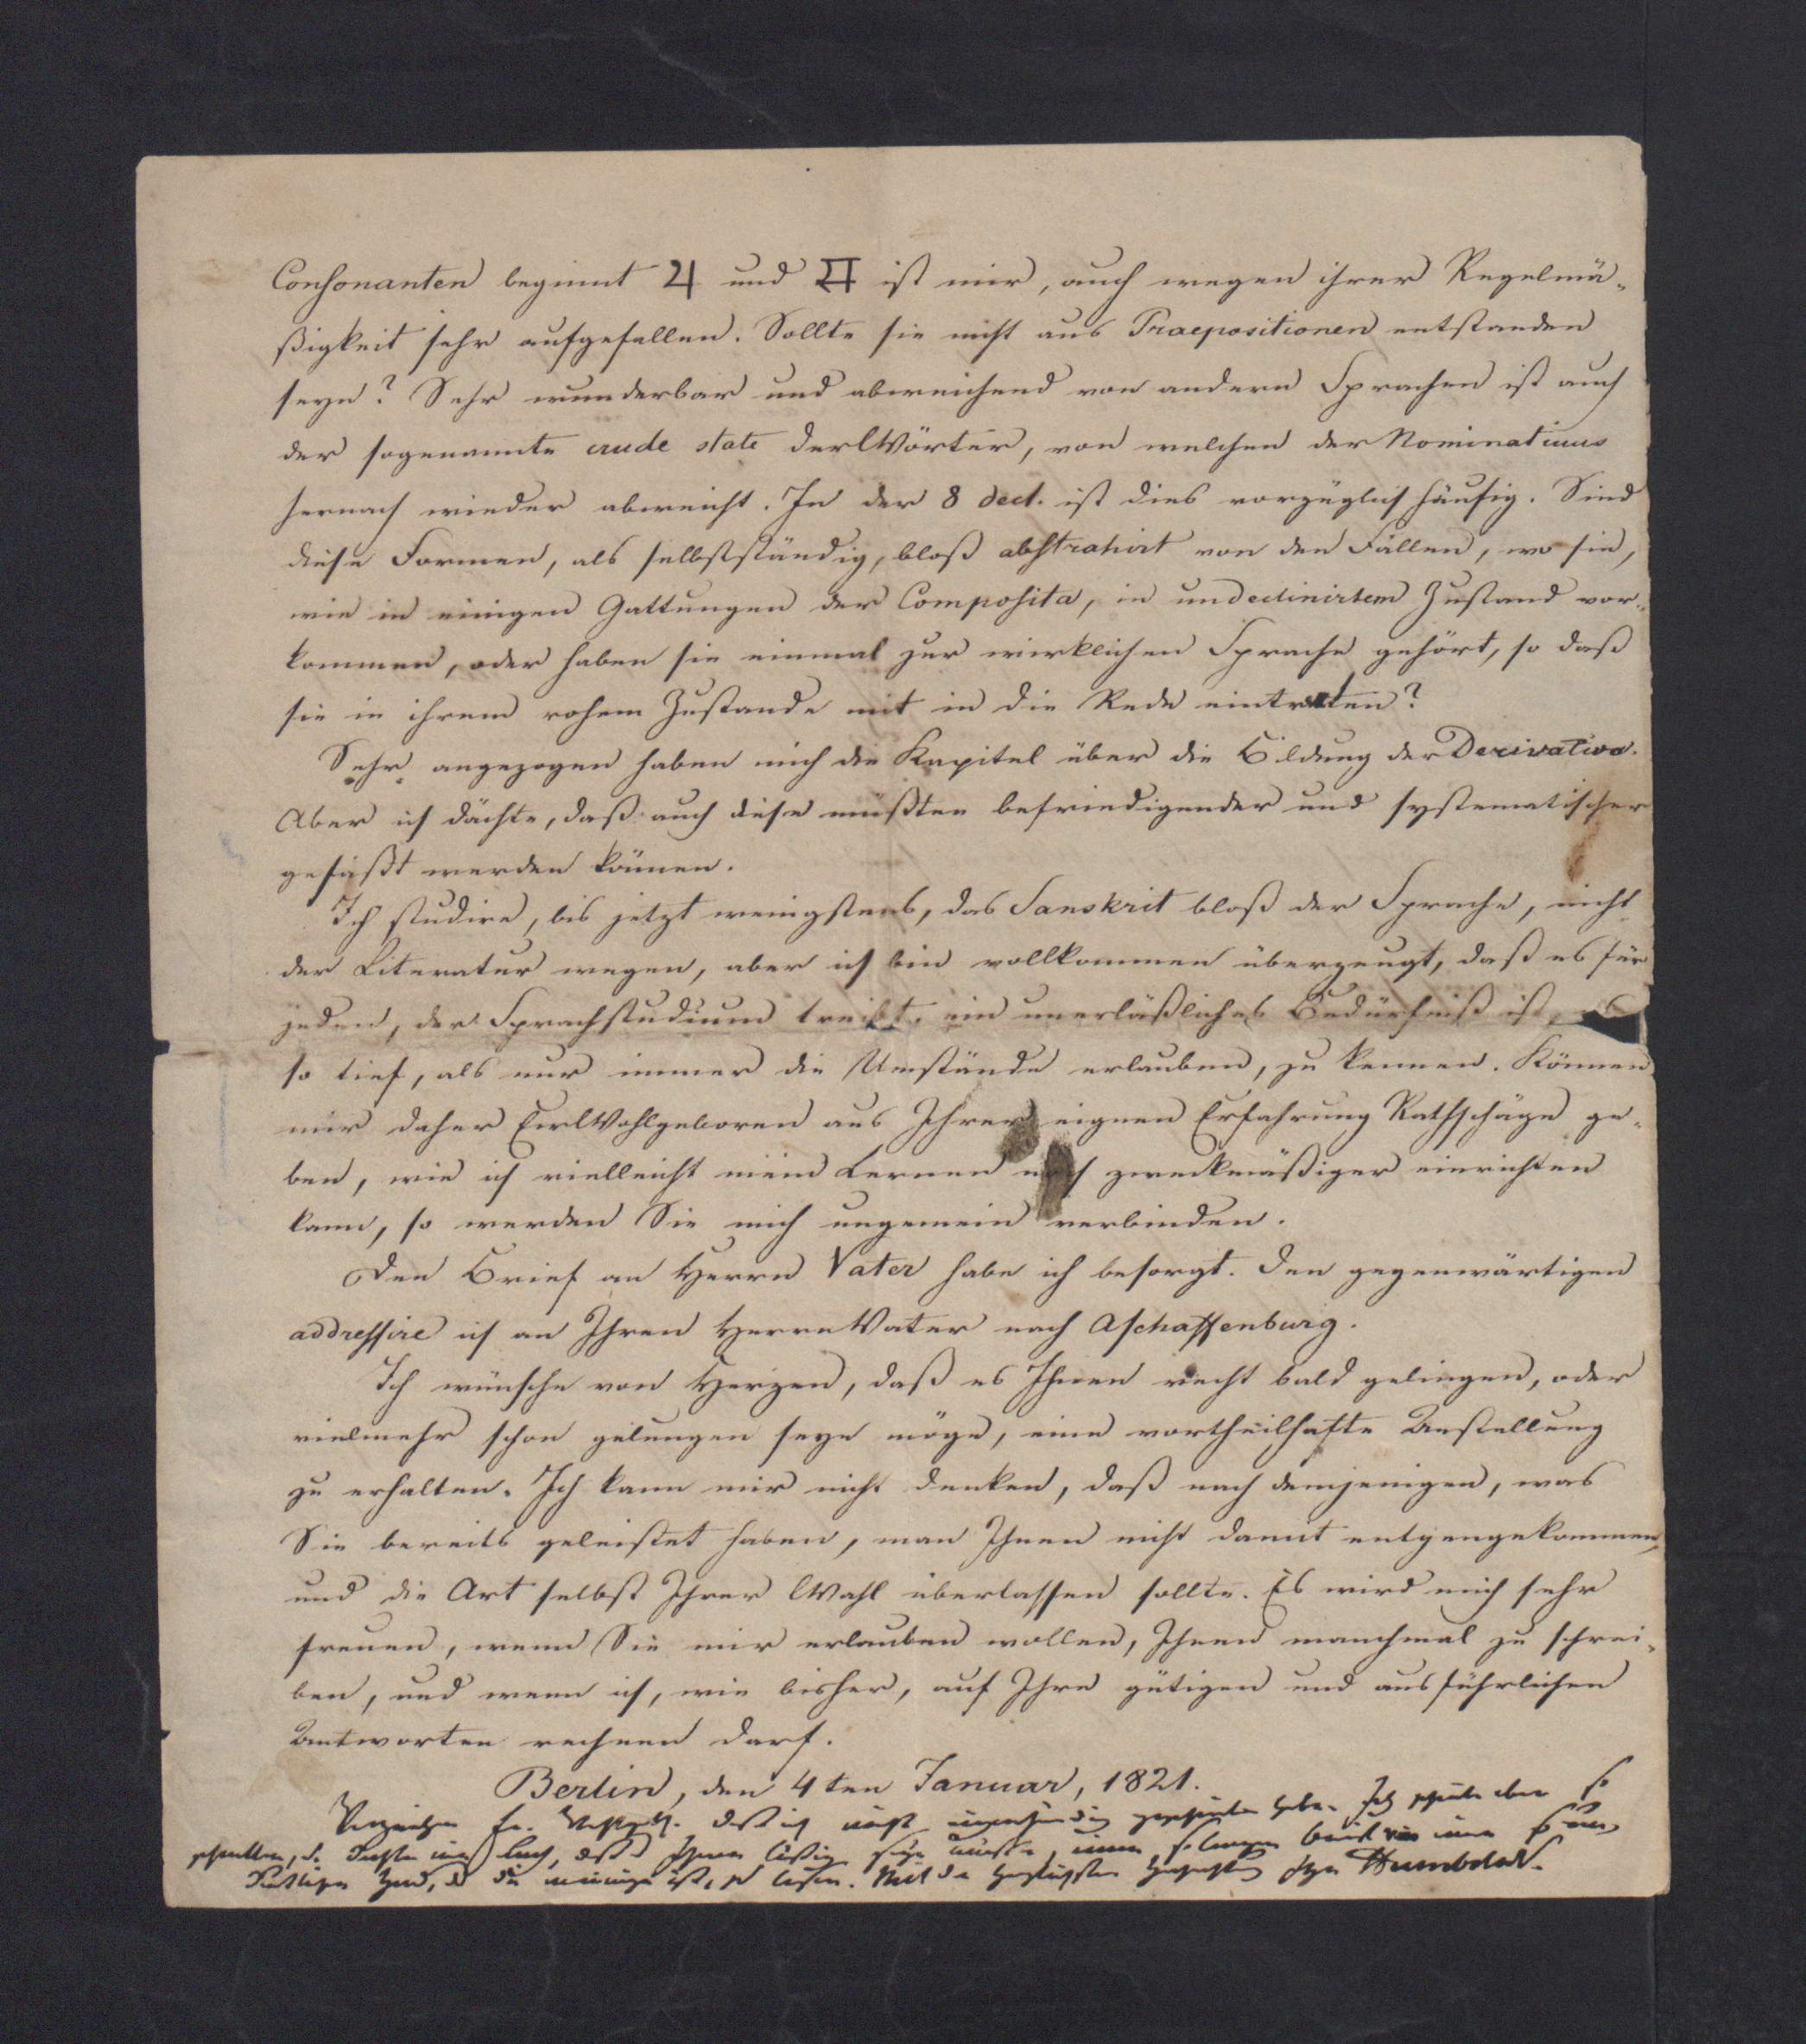 Consonanten beginnt 4 und ㄸ ist mir, auch wegen ihrer Regelmä-
ßigkeit sehr aufgefallen. Sollte sie nicht aus Praepositionen entstanden
seyn? Sehr wunderbar und abweichend von andern Sprachen ist auch
der sogenannte crude state der Wörter, von welchen der Nominativus
hernach wieder abweicht. In der 8 decl. ist dies vorzüglich häufig. Sind
diese Formen, als selbstständig, bloß abstrahirt von den Fällen, wo sie,
wie in einigen Gattungen der Composita, in undeclinirtem Zustand vor-
kommen, oder haben sie einmal zur wirklichen Sprache gehört, so daß
sie in ihrem rohem Zustande mit in die Rede eintraten?
Sehr angezogen haben mich die Kapitel über die Bildung der Derivativa.
Aber ich dächte, daß auch diese müßten befriedigender und systematischer
gefaßt werden können.
Ich studire, bis jetzt wenigstens, das Sanskrit bloß der Sprache, nicht
der Literatur wegen, aber ich bin vollkommen überzeugt, daß es für
jeden, der Sprachstudium treibt, ein unerläßliches Bedürfniß ist, es
so tief, als nur immer die Umstände erlauben, zu kennen. Können
mir daher Ew. Wohlgeboren aus Ihrer eignen Erfahrung Rathschäge ge-
ben, wie ich vielleicht mein Lernen noch zweckmäßiger einrichten
kann, so werden Sie mich ungemein verbinden.
Den Brief an Herrn Vater habe ich besorgt. Den gegenwärtigen
addressire ich an Ihren Herrn Vater nach Aschaffenburg.
Ich wünsche von Herzen, daß es Ihnen recht bald gelingen, oder
vielmehr schon gelungen seyn möge, eine vortheilhafte Anstellung
zu erhalten. Ich kann mir nicht denken, daß nach demjenigen, was
Sie bereits geleistet haben, man Ihnen nicht damit entgengekommen,
und die Art selbst Ihrer Wahl überlassen sollte. Es wird mich sehr
freuen, wenn Sie mir erlauben wollen, Ihnen manchmal zu schrei-
ben, und wenn ich, wie bisher, auf Ihre gütigen und ausführlichen
Antworten rechnen darf.
Berlin, den 4ten Januar, 1821.
Verzeihen Ew. Wohlgeb. daß ich nicht eigenhändig geschrieben habe. Ich schreibe aber so
schlecht, daß Ihnen lästig seyn müßte, einen so langen Brief von einer so un-
deutlichen Hand, als die meinige ist, zu lesen. Mit der herzlichsten Hochachtung Humboldt.